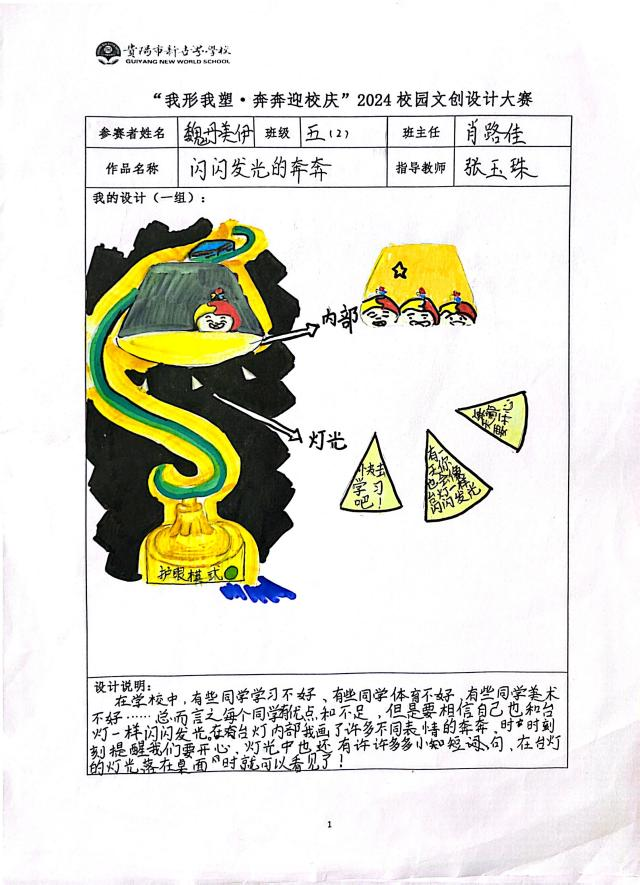 贵阳市新世界学校
GUIYANG NEW WORLD SCHOOL
“我形我塑·奔奔迎校庆”2024校园文创设计大赛
参赛者姓名 魏丹美伊 班级 五(2) 班主任 肖路佳
作品名称 闪闪发光的奔奔 指导教师 张玉珠
我的设计(一组):
内部
灯光
快去学习吧!
有一天你也会像台灯一样闪闪发光
护眼模式
设计说明:
在学校中,有些同学学习不好、有些同学体育不好、有些同学美术
不好……总而言之每个同学有优点和不足,但是要相信自己也和台
灯一样闪闪发光,在台灯内部我画了许多不同表情的奔奔,时时刻
刻提醒我们要开心,灯光中也还有许许多多小知短词、句、在台灯
的灯光落在桌面时就可以看见了!
1